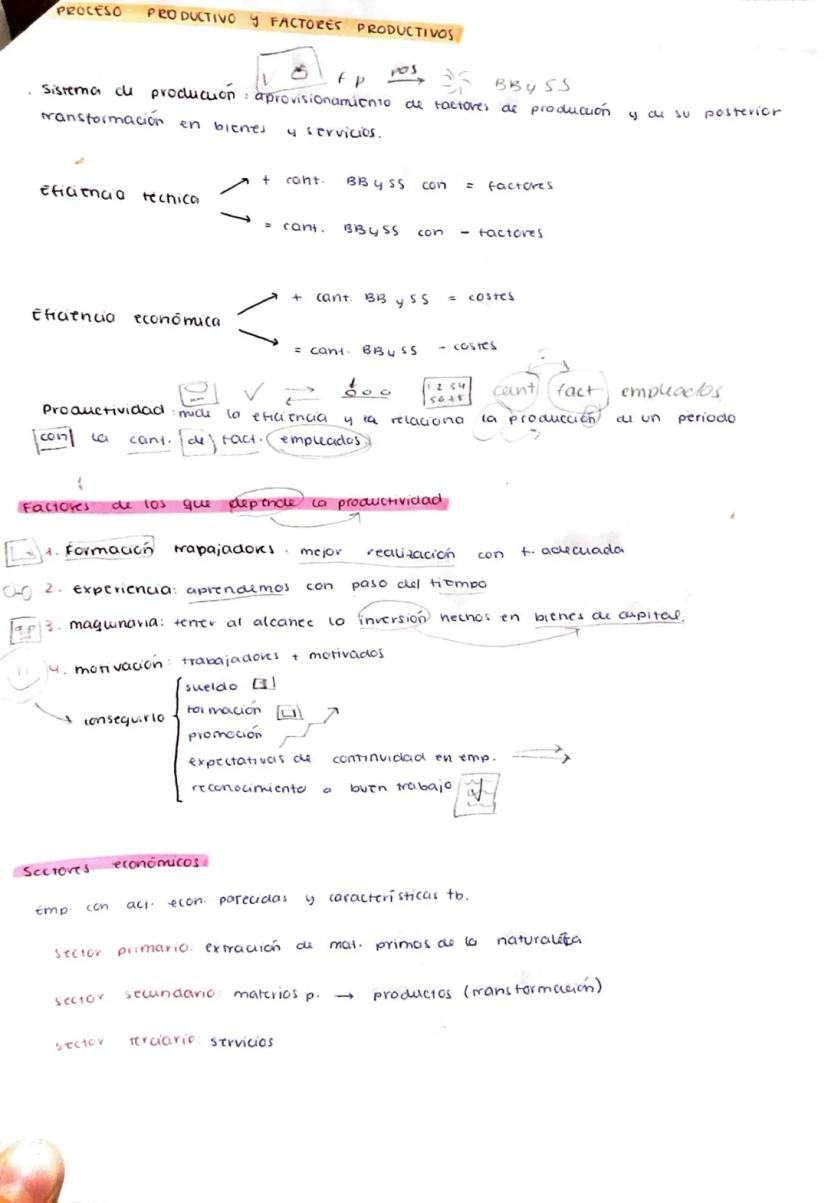 PROCESO PRODUCTIVO Y FACTORES PRODUCTIVOS
fp pos → BB y SS
. Sistema de producción: aprovisionamiento de factores de producción y de su posterior
transformación en bienes y servicios.
Eficiencia técnica
+ cant. BB y SS con = factores
= cant. BB y SS con - factores
Eficiencia económica
+ cant. BB y SS = costes
= cant. BB y SS - costes
1 2 3 4
5 6 7 8
cant fact empleados
Productividad: mide la eficiencia y la relaciona la producción de un periodo
con la cant. de fact. empleados
Factores de los que depende la productividad
1. Formación trabajadores. mejor realización con f. adecuada
2. experiencia: aprendemos con paso del tiempo
3. maquinaria: tener al alcance la inversión hechos en bienes de capital.
4. motivación: trabajadores + motivados
→ conseguirlo
sueldo
formación
promoción
expectativas de continuidad en emp.
reconocimiento a buen trabajo
Sectores económicos
Emp. con act. econ. parecidas y características tb.
sector primario: extracción de mat. primas de la naturaleza
sector secundario: materias p. → productos (transformación)
sector terciario: servicios